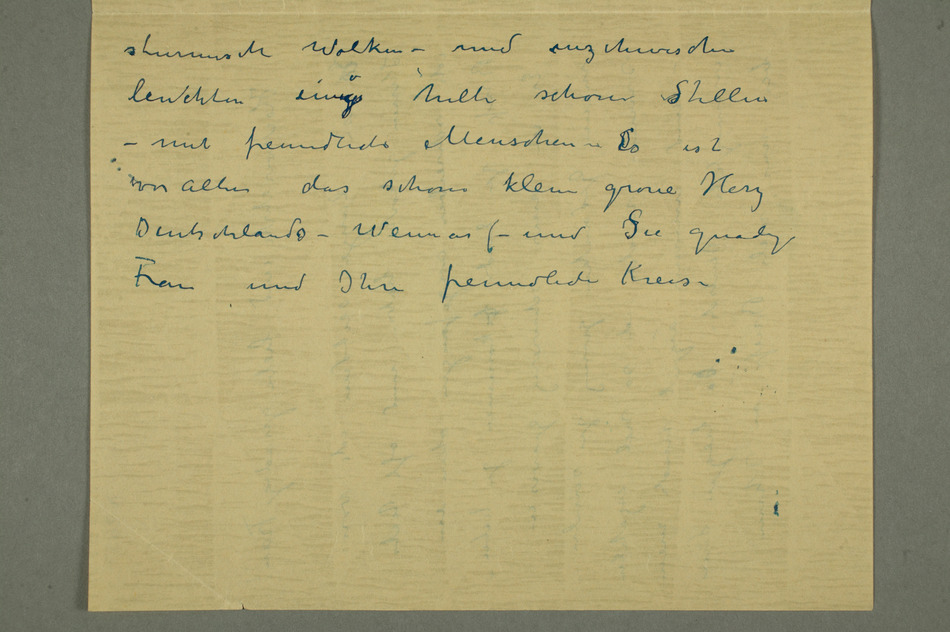 sturmisch Wolken – und inzchwischen
leuchten einige helle schone Stellen
– mit freundliche Menschen – Es ist
vor allen das schone kleine grosse Herz
Deutschlands – Weimar (– und Sie gnadige
Frau und Ihre freundliche Kreise